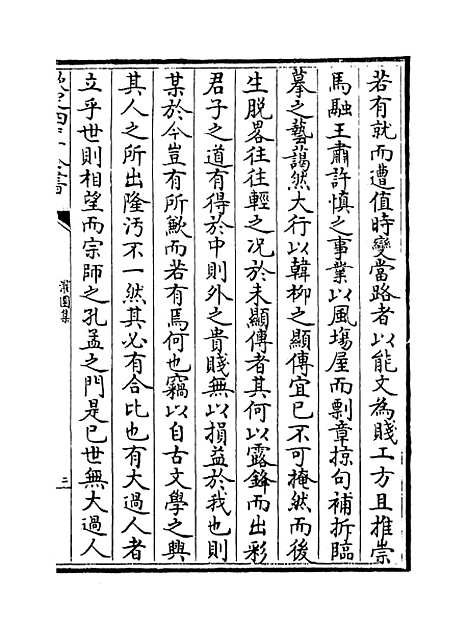 若有就而遭值時變當路者以能文為賤工方且推崇
馬融王肅許慎之事業以風塲屋而剽章掠句補拆臨
摹之藝藹然大行以韓柳之顯傳宜已不可掩然而後
生脱畧往往輕之况於未顯傳者其何以露鋒而出彩
君子之道有得於中則外之貴賤無以損益於我也則
某於今豈有所歉而若有焉何也竊以自古文學之興
其人之所出隆汚不一然其必有合比也有大過人者
立乎世則相望而宗師之孔孟之門是已世無大過人
灌園集
三